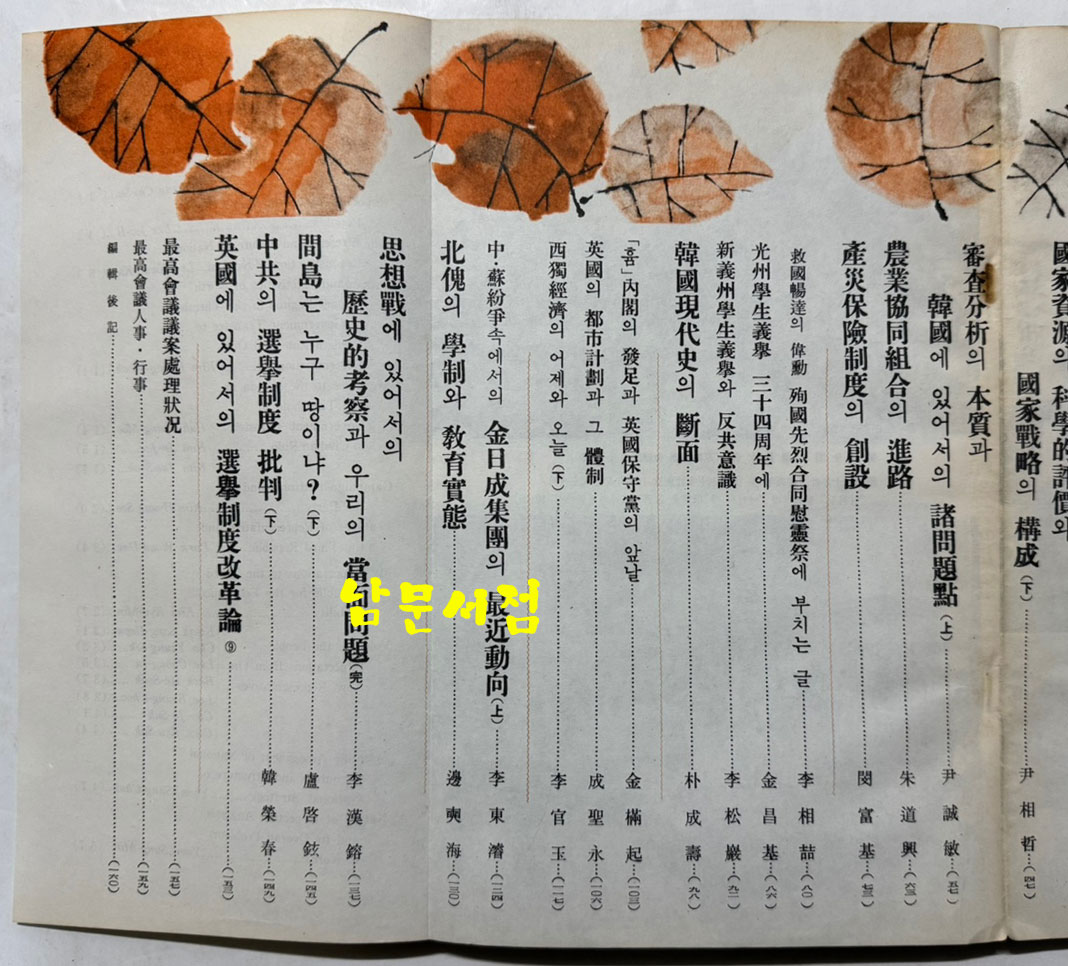 國家資源의 科學的評價와
國家戰略의 構成(下)…尹相哲…(四七)
審査分析의 本質과
韓國에 있어서의 諸問題點(上)…尹誠敏…(五七)
農業協同組合의 進路…朱道興…(六三)
產災保險制度의 創設…閔富基…(七三)
救國暢達의 偉勳 殉國先烈合同慰靈祭에 부치는 글…李相喆…(八〇)
光州學生義擧 三十四周年에…金昌基…(八六)
新義州學生義擧와 反共意識…李松巖…(九二)
韓國現代史의 斷面…朴成壽…(九八)
「흄」內閣의 發足과 英國保守黨의 앞날…金㒼起…(一〇三)
英國의 都市計劃과 그 體制…成聖永…(一〇六)
西獨經濟의 어제와 오늘(下)…李官玉…(一一七)
中·蘇紛爭속에서의 金日成集團의 最近動向(上)…李東濬…(一二四)
北傀의 學制와 敎育實態…邊奭海…(一三〇)
思想戰에 있어서의
歷史的考察과 우리의 當面問題(完)…李漢鎔…(一三七)
間島는 누구 땅이냐?(下)…盧啓鉉…(一四五)
中共의 選擧制度 批判(下)…韓榮春…(一四九)
英國에 있어서의 選擧制度改革論⑨…(一五三)
最高會議議案處理狀況…(一五七)
最高會議人事·行事…(一五九)
編輯後記…(一六〇)
남문서점